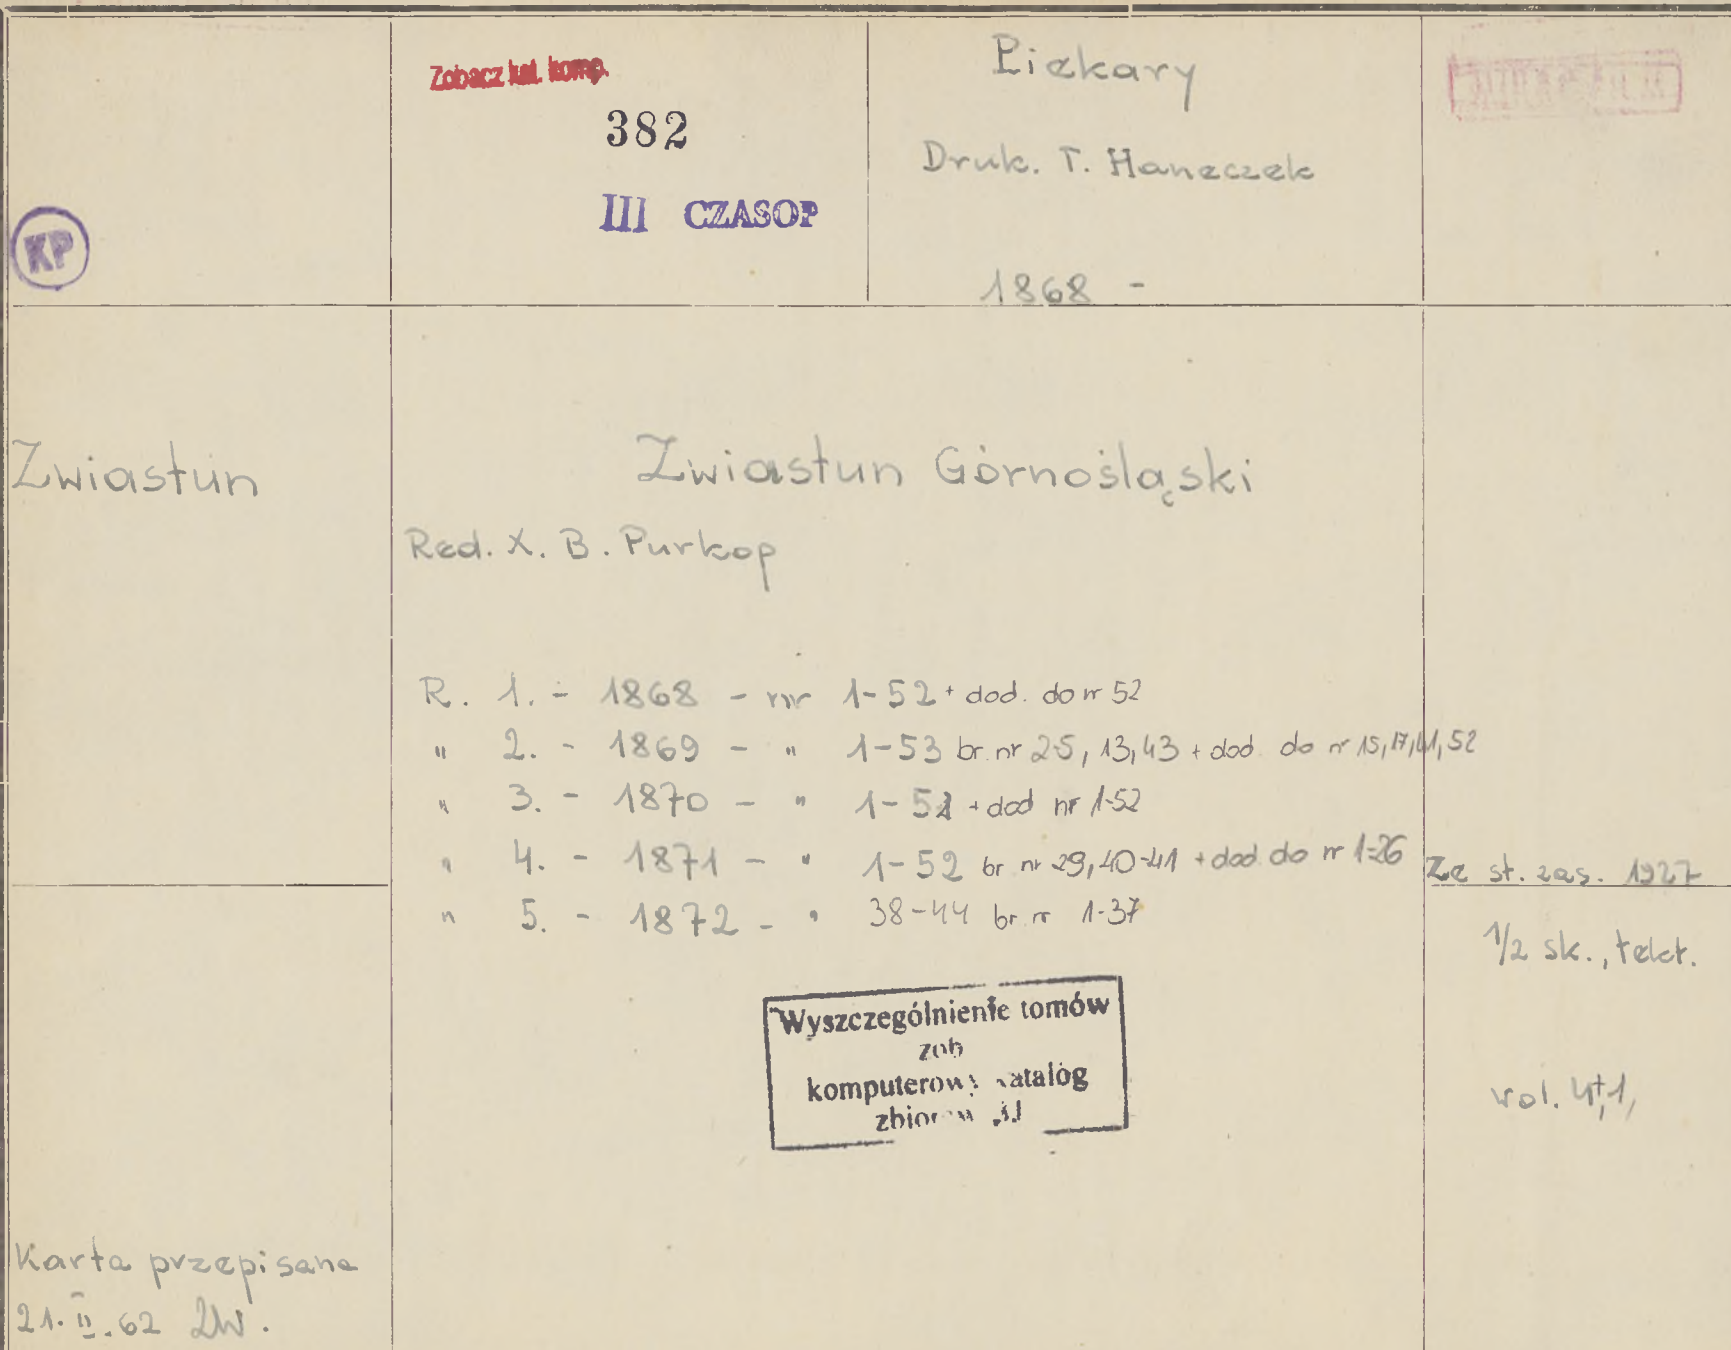 Zobacz kat. komp.
382
III CZASOP
KP
Piekary
Druk. T. Haneczek
1868 -
Zwiastun
Zwiastun Górnośląski
Red. X. B. Purkop
R. 1. - 1868 - nr 1-52 + dod. do nr 52
" 2. - 1869 - " 1-53 br. nr 2-5, 13, 43 + dod. do nr 15, 17, 41, 52
" 3. - 1870 - " 1-52 + dod nr 1-52
" 4. - 1871 - " 1-52 br nr 29, 40-41 + dod. do nr 1-26
" 5. - 1872 - " 38-44 br. nr 1-37
Ze st. zas. 1927
1/2 sk., tekt.
vol. 4+1,
Wyszczególnienie tomów
zob
komputerowy katalog
zbiorów BJ
Karta przepisana
21. II. 62 ZW.